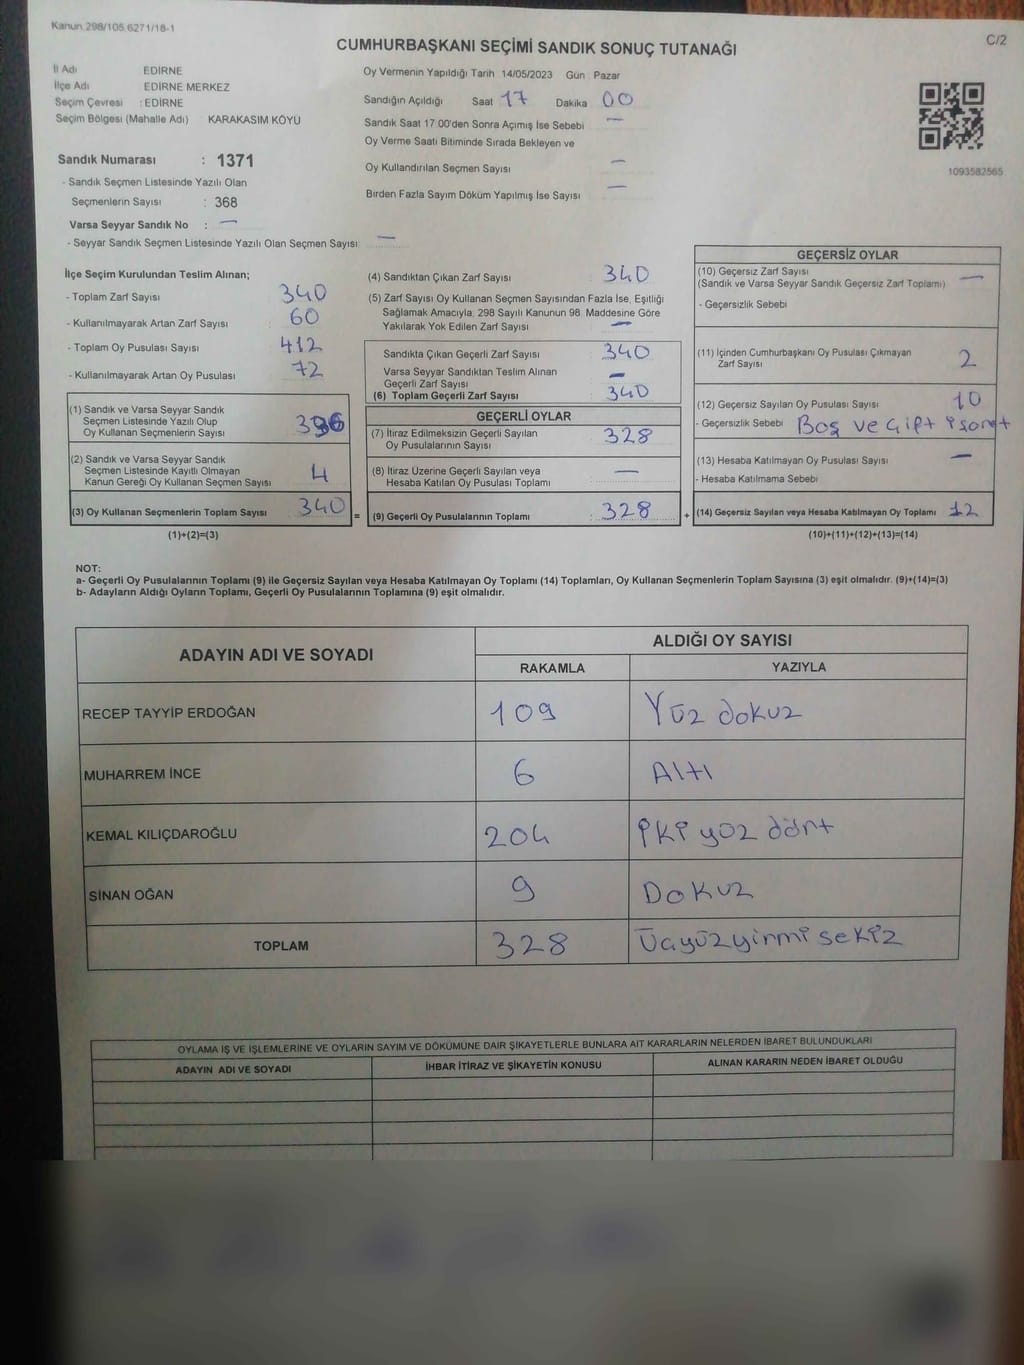 Kanun 298/105,6271/18-1
C/2
CUMHURBAŞKANI SEÇİMİ SANDIK SONUÇ TUTANAĞI
İl Adı EDİRNE
İlçe Adı EDİRNE MERKEZ
Seçim Çevresi : EDİRNE
Seçim Bölgesi (Mahalle Adı) KARAKASIM KÖYÜ
Sandık Numarası : 1371
- Sandık Seçmen Listesinde Yazılı Olan
Seçmenlerin Sayısı : 368
Varsa Seyyar Sandık No : —
- Seyyar Sandık Seçmen Listesinde Yazılı Olan Seçmen Sayısı: —
Oy Vermenin Yapıldığı Tarih 14/05/2023 Gün Pazar
Sandığın Açıldığı Saat 17 Dakika 00
Sandık Saat 17:00'den Sonra Açımış İse Sebebi —
Oy Verme Saati Bitiminde Sırada Bekleyen ve
Oy Kullandırılan Seçmen Sayısı —
Birden Fazla Sayım Döküm Yapılmış İse Sayısı —
1093582565
İlçe Seçim Kurulundan Teslim Alınan;
- Toplam Zarf Sayısı 340
- Kullanılmayarak Artan Zarf Sayısı 60
- Toplam Oy Pusulası Sayısı 412
- Kullanılmayarak Artan Oy Pusulası 72
(1) Sandık ve Varsa Seyyar Sandık
Seçmen Listesinde Yazılı Olup
Oy Kullanan Seçmenlerin Sayısı
(2) Sandık ve Varsa Seyyar Sandık
Seçmen Listesinde Kayıtlı Olmayan
Kanun Gereği Oy Kullanan Seçmen Sayısı 4
(3) Oy Kullanan Seçmenlerin Toplam Sayısı 340 =
(1)+(2)=(3)
(4) Sandıktan Çıkan Zarf Sayısı 340
(5) Zarf Sayısı Oy Kullanan Seçmen Sayısından Fazla İse, Eşitliği
Sağlamak Amacıyla, 298 Sayılı Kanunun 98. Maddesine Göre
Yakılarak Yok Edilen Zarf Sayısı —
Sandıkta Çıkan Geçerli Zarf Sayısı 340
Varsa Seyyar Sandıktan Teslim Alınan
Geçerli Zarf Sayısı —
(6) Toplam Geçerli Zarf Sayısı 340
GEÇERLİ OYLAR
(7) İtiraz Edilmeksizin Geçerli Sayılan
Oy Pusulalarının Sayısı 328
(8) İtiraz Üzerine Geçerli Sayılan veya
Hesaba Katılan Oy Pusulası Toplamı —
(9) Geçerli Oy Pusulalarının Toplamı : 328 +
GEÇERSİZ OYLAR
(10) Geçersiz Zarf Sayısı
(Sandık ve Varsa Seyyar Sandık Geçersiz Zarf Toplamı) —
- Geçersizlik Sebebi
(11) İçinden Cumhurbaşkanı Oy Pusulası Çıkmayan
Zarf Sayısı 2
(12) Geçersiz Sayılan Oy Pusulası Sayısı 10
- Geçersizlik Sebebi Boş ve Çift işaret
(13) Hesaba Katılmayan Oy Pusulası Sayısı —
- Hesaba Katılmama Sebebi
(14) Geçersiz Sayılan veya Hesaba Katılmayan Oy Toplamı 12
(10)+(11)+(12)+(13)=(14)
NOT:
a- Geçerli Oy Pusulalarının Toplamı (9) ile Geçersiz Sayılan veya Hesaba Katılmayan Oy Toplamı (14) Toplamları, Oy Kullanan Seçmenlerin Toplam Sayısına (3) eşit olmalıdır. (9)+(14)=(3)
b- Adayların Aldığı Oyların Toplamı, Geçerli Oy Pusulalarının Toplamına (9) eşit olmalıdır.
ADAYIN ADI VE SOYADI
ALDIĞI OY SAYISI
RAKAMLA YAZIYLA
RECEP TAYYİP ERDOĞAN 109 Yüz dokuz
MUHARREM İNCE 6 Altı
KEMAL KILIÇDAROĞLU 204 iki yüz dört
SİNAN OĞAN 9 Dokuz
TOPLAM 328 Üçyüzyirmi sekiz
OYLAMA İŞ VE İŞLEMLERİNE VE OYLARIN SAYIM VE DÖKÜMÜNE DAİR ŞİKAYETLERLE BUNLARA AİT KARARLARIN NELERDEN İBARET BULUNDUKLARI
ADAYIN ADI VE SOYADI İHBAR İTİRAZ VE ŞİKAYETİN KONUSU ALINAN KARARIN NEDEN İBARET OLDUĞU